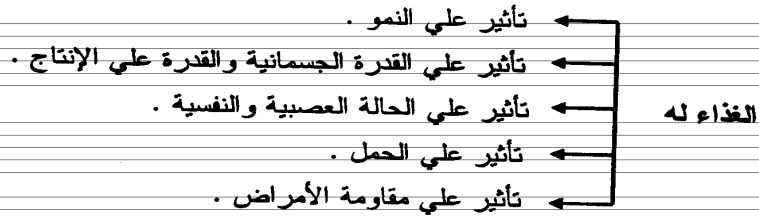 تأثير علي النمو .
تأثير علي القدرة الجسمانية والقدرة علي الإنتاج .
الغذاء له
تأثير علي الحالة العصبية والنفسية .
تأثير علي الحمل .
تأثير علي مقاومة الأمراض .